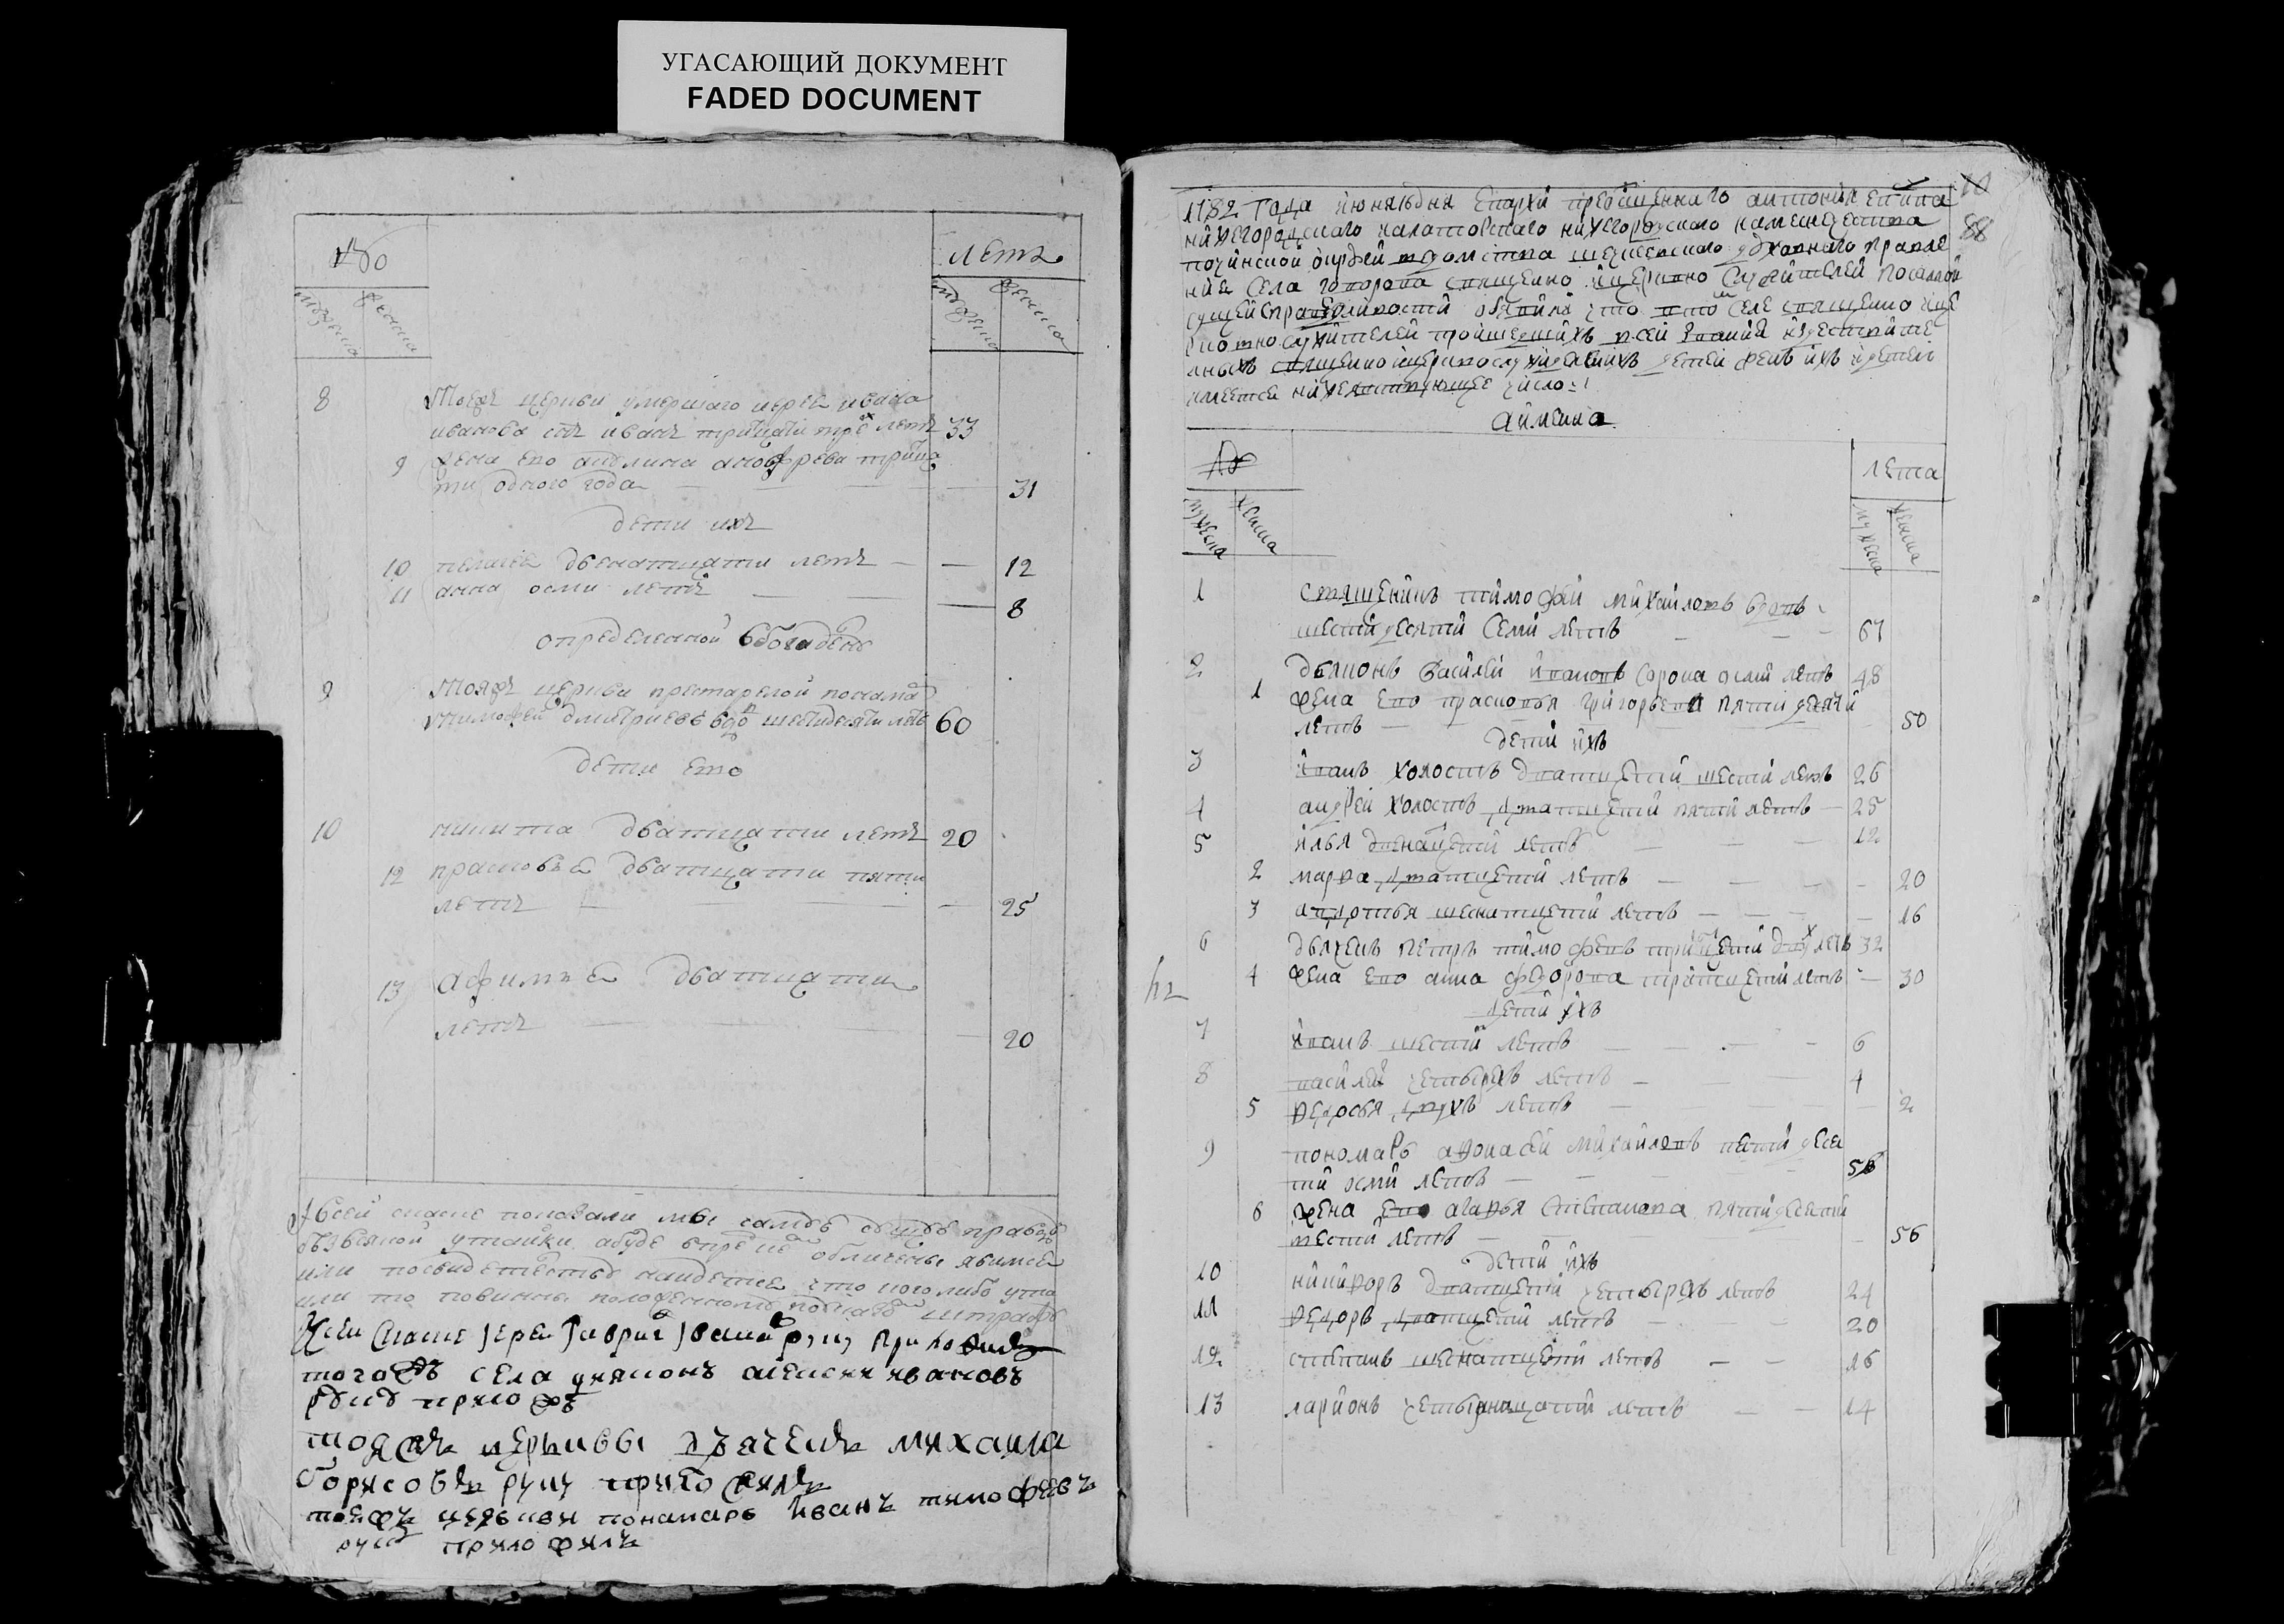 УГАСАЮЩИЙ ДОКУМЕНТ
FADED DOCUMENT
№
летъ
мужеска
женска
мужеска
женска
8 Тоежъ церкви умершаго иерея ивана
иванова снъ иванъ тритцати трехъ летъ 33
9 жена ево акулина анофрева тритца
ти одного года — — — 31
дети ихъ
10 пелагея двенатцати летъ — — 12
11 анна осми летъ — — — 8
определенной вбогадену
9 Тояжъ церкви престарелой понама
Тимофей дмитриевъ вдо шестидесяти летъ 60
дети ево
10 никита дватцати летъ 20
12 прасковья дватцати пяти
летъ — — — 25
13 Афимья дватцати
летъ — — — 20
всей скаске показали мы самую сущую правду
безвсякой утайки абуде впредь обличены явимся
или посвидетельству найдется что кого либо ута
или то повинны положенному штрафу
Ксей скаске иерей гаврил руку приложилъ
тогожъ села дияконъ алексей ивановъ
руку приложъ
тояжъ церькви дьячекъ михаила
борисовъ руку приложилъ
тоежъ церькви понамарь Иванъ тимофеевъ
руку приложилъ
10
88
1782 года июня дня Епархи преосщеннаго антония епспа
нижегородскаго иалатовскаго нижегороускаго намесничества
починской округи ведомства духовнаго правле
ния села говорова священно ицерковно служителей посамой
сущей справедливости обявиля что втомъ селе священно ице
рковно служителей произшедшихъ всей звания идествите
лныхъ священно ицерковнослужителскихъ детей женъ ихъ идетей
имеется нижеследующее число:
аимена
№
лета
мужеска
женска
мужеска
женска
1 священникъ тимофей михаиловъ вдовъ
шестидесяти семи летъ — — 67
2 дьяконъ василей ивановъ сорока осми летъ 48
1 жена ево прасковья григорьева пятидесяти
летъ — — — 50
дети ихъ
3 иванъ холостъ дватцети шести летъ 26
4 андрей холостъ дватцети пяти летъ — 25
5 илья двенацети летъ — — — 12
2 марфа дватцети летъ — — — 20
3 авдотья шеснатцети летъ — — — 16
6 дьячекъ петръ тимофевъ тритцети двухъ летъ 32
4 жена ево анна федорова тритцети летъ — 30
дети ихъ
7 иванъ шести летъ — — — 6
8 василей четырехъ летъ — — 4
5 федосья двухъ летъ — — 2
9 пономарь афонасей михайловъ петидесе
ти осми летъ — — — 58
6 жена ево агафья степанова пятидесети
шести летъ — — — 56
дети ихъ
10 никифоръ дватцети четырехъ летъ 24
11 федоръ дватцети летъ — — 20
12 степанъ шеснатцети летъ — — 16
13 ларионъ четырнацати летъ — — 14